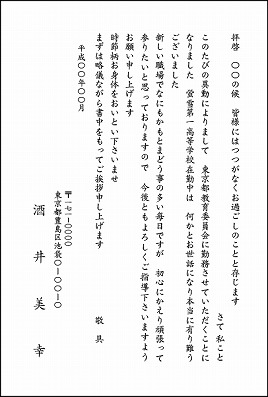 拝啓　〇〇の候　皆様にはつつがなくお過ごしのことと存じます
さて 私こと
このたびの異動によりまして　東京都教育委員会に勤務させていただくことに
なりました　蛍雪第一高等学校在勤中は　何かとお世話になり本当に有り難う
ございました
新しい職場でなにもかもとまどう事の多い毎日ですが　初心にかえり頑張って
参りたいと思っておりますので　今後ともよろしくご指導下さいますよう
お願い申し上げます
時節柄お身体をおいとい下さいませ
まずは略儀ながら書中をもってご挨拶申し上げます
敬具
平成〇〇年〇〇月
〒一七一-〇〇〇〇
東京都豊島区池袋〇-〇〇-〇
酒井美幸